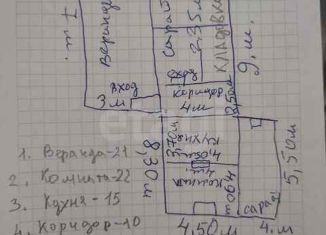 7 м
Веранда
Сарай
2,35 м
КЛАДОВКА
9 м.
Вход
Коридор
3 м
4 м
2,70 м
КУХНЯ
8,30 м
Комната
4,90 м
5,50 м
сарай
4,50 м
4 м.
1. Веранда-21
2. Комната-22
3. Кухня-15
4. Коридор-10